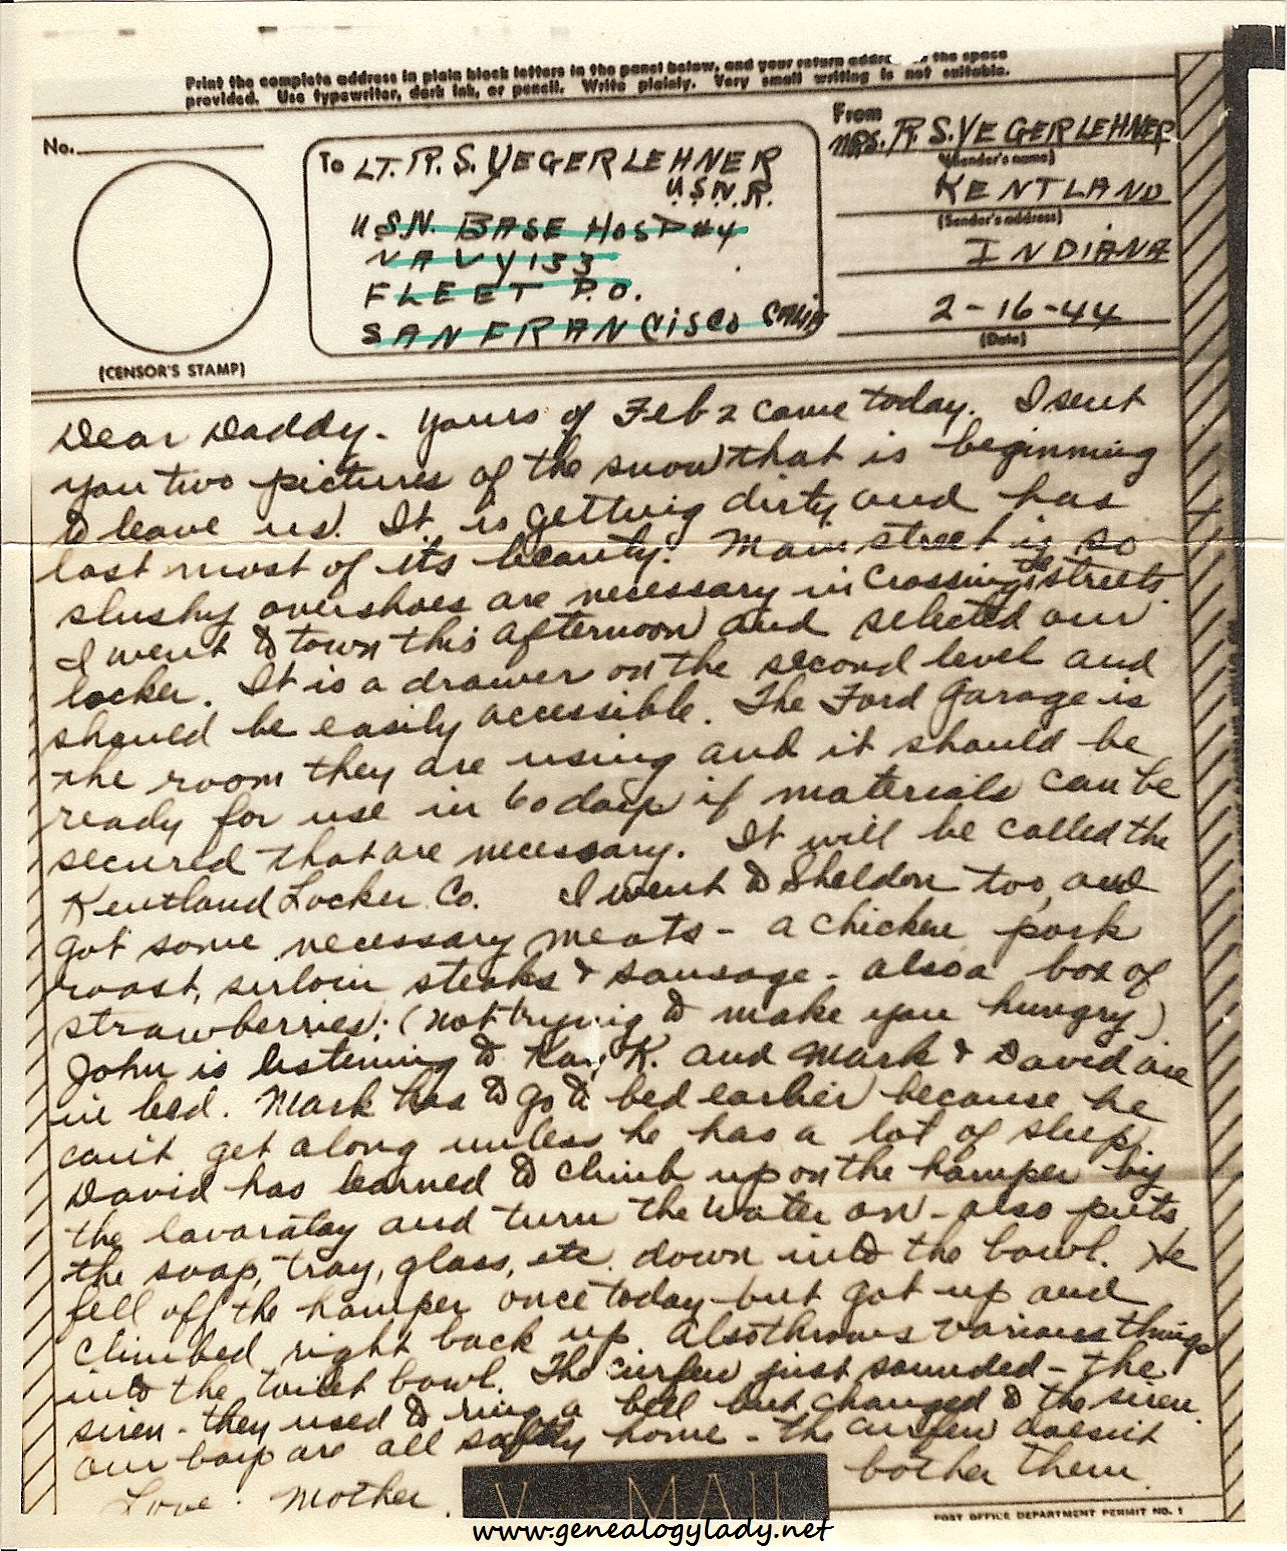 Print the complete address in plain block letters in the panel below, and your return addre the space
provided. Use typewriter, dark ink, or pencil. Write plainly. Very small writing is not suitable.
No.
(CENSOR'S STAMP)
To LT. R. S. VEGERLEHNER
U.S.N.R.
U.S.N. BASE HOSP #4
NAVY 133
FLEET P.O.
SAN FRANCISCO CALIF
From
MRS. R. S. VEGERLEHNER
(Sender's name)
KENTLAND
(Sender's address)
INDIANA
2-16-44
(Date)
Dear Daddy - Yours of Feb 2 came today. I sent
you two pictures of the snow that is beginning
to leave us. It is getting dirty and has
lost most of its beauty. Main street is so
slushy overshoes are necessary in crossing the streets.
I went to town this afternoon and selected our
locker. It is a drawer on the second level and
should be easily accessible. The Ford Garage is
the room they are using and it should be
ready for use in 60 days if materials can be
secured that are necessary. It will be called the
Kentland Locker Co. I went to Sheldon too, and
got some necessary meats - a chicken pork
roast, sirloin steaks & sausage - also a box of
strawberries. (Not trying to make you hungry)
John is listening to Kay K. and Mark & David are
in bed. Mark has to go to bed earlier because he
can't get along unless he has a lot of sleep.
David has learned to climb up on the hamper by
the lavaratay and turn the water on - also puts
the soap, tray, glass, etc. down into the bowl. He
fell off the hamper once today but got up and
climbed right back up. Also throws various things
into the toilet bowl. The curfew just sounded - the
siren - they used to ring a bell but changed to the siren.
Our boys are all safely home - the curfew doesn't
bother them
Love. Mother
V - MAIL
POST OFFICE DEPARTMENT PERMIT NO. 1
www.genealogylady.net